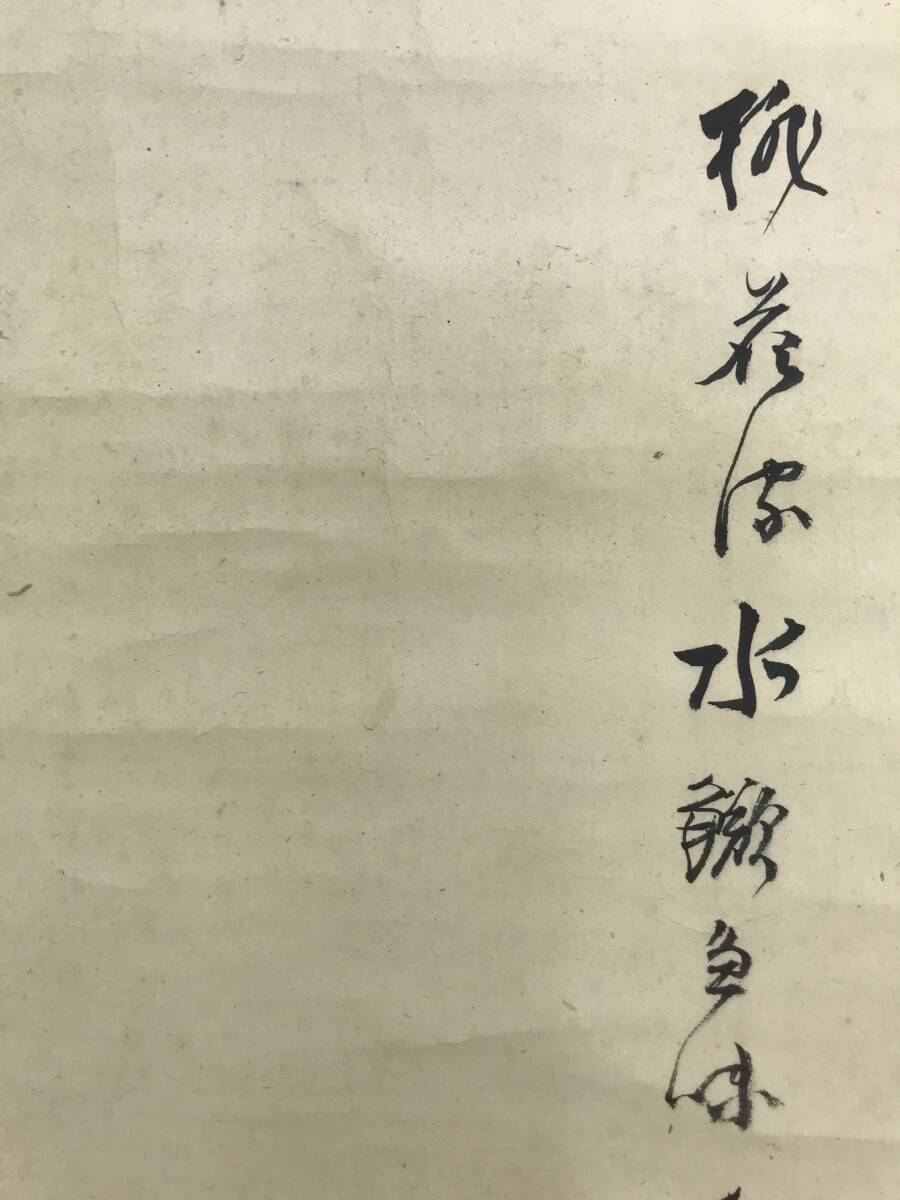 桃花流水鱖魚味